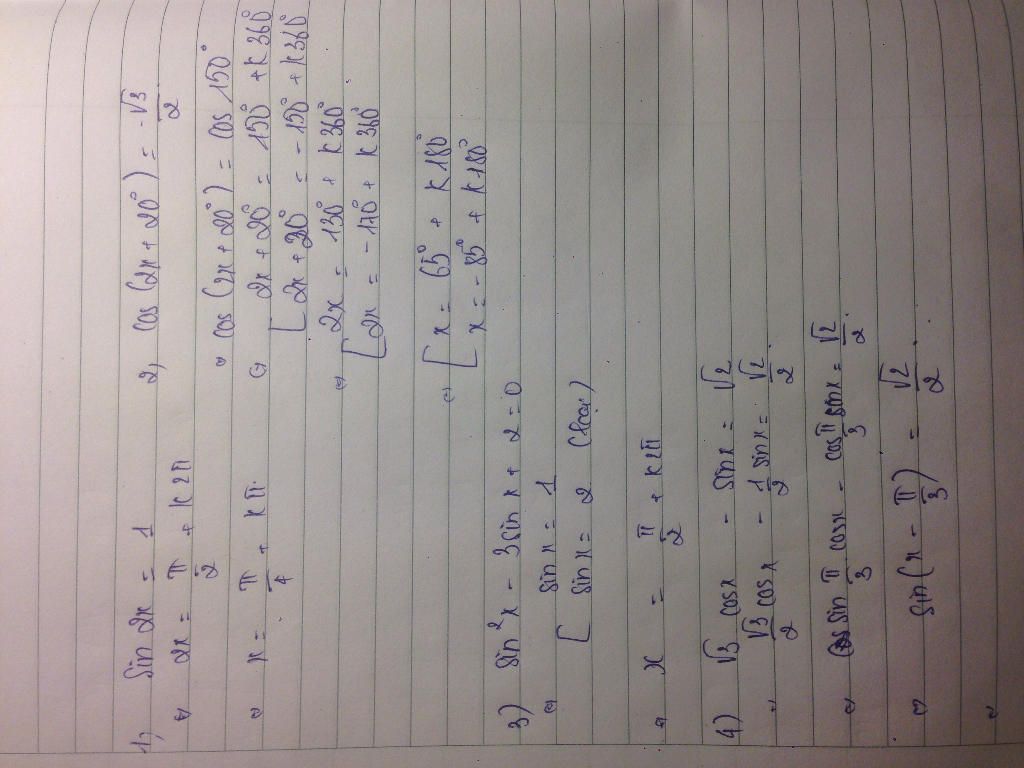 1, sin 2x = 1
⇔ 2x = π/2 + k2π
⇔ x = π/4 + kπ.
2, cos (2x + 20°) = -√3/2
⇔ cos (2x + 20°) = cos 150°
⇔ [ 2x + 20° = 150° + k360°
[ 2x + 20° = -150° + k360°
⇔ [ 2x = 130° + k360°
[ 2x = -170° + k360°
⇔ [ x = 65° + k180°
[ x = -85° + k180°
3) sin²x - 3sin x + 2 = 0
⇔ [ sin x = 1
[ sin x = 2 (loại)
⇔ x = π/2 + k2π
4) √3 cosx - sinx = √2
⇔ √3/2 cosx - 1/2 sinx = √2/2.
⇔ sin π/3 cosx - cos π/3 sinx = √2/2.
⇔ sin(x - π/3) = √2/2.
⇔